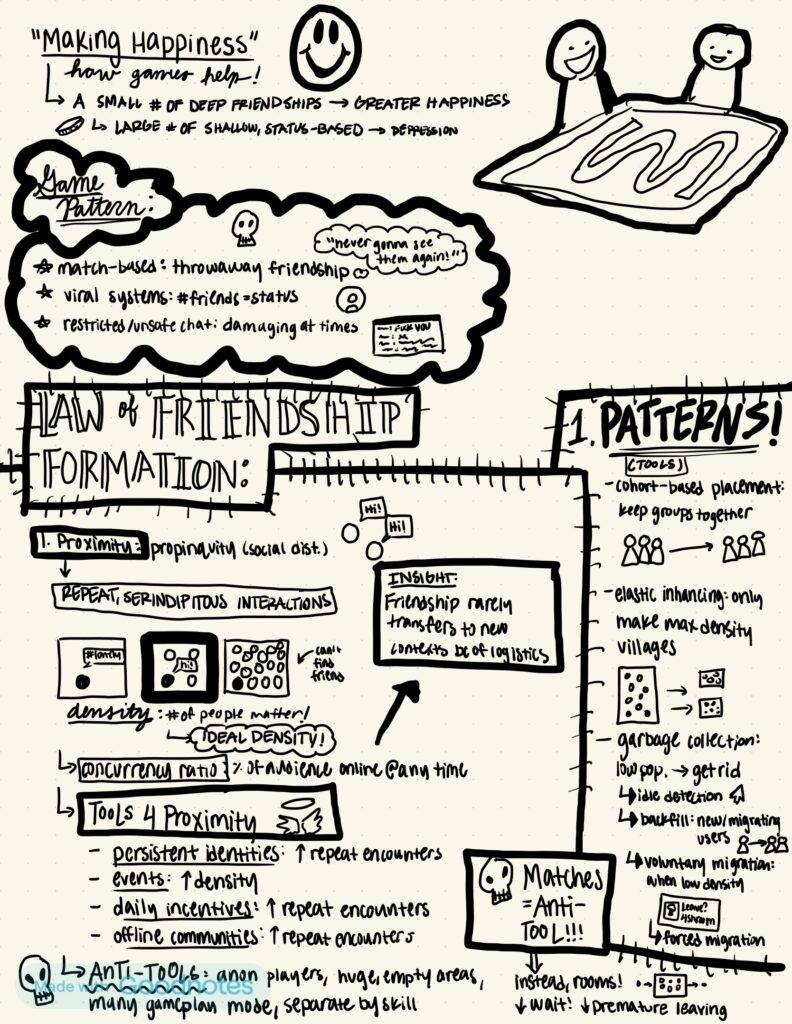 "Making Happiness"
how games help!
↳ A SMALL # OF DEEP FRIENDSHIPS → GREATER HAPPINESS
↳ LARGE # OF SHALLOW, STATUS-BASED → DEPRESSION
Game
Pattern:
"never gonna see
them again!"
☆ match-based: throwaway friendship
★ viral systems: #friends = status
☆ restricted/unsafe chat: damaging at times
FUCK YOU
LAW of FRIENDSHIP
FORMATION:
1. Proximity: propinquity (social dist.)
Hi!
Hi!
REPEAT, SERINDIPITOUS INTERACTIONS
INSIGHT:
Friendship rarely
transfers to new
contexts bc of logistics
#lonely
hi!
can't
find
friend
density: # of people matter!
↳ IDEAL DENSITY!
↳ concurrency ratio: % of audience online @ any time
↳ TOOLS 4 Proximity
- persistent identities: ↑ repeat encounters
- events: ↑ density
- daily incentives: ↑ repeat encounters
- offline communities: ↑ repeat encounters
↳ ANTI-TOOLS: anon players, huge, empty areas,
many gameplay mode, separate by skill
Made with Goodnotes
1. PATTERNS!
(TOOLS)
- cohort-based placement:
keep groups together
- elastic inhancing: only
make max density
villages
- garbage collection:
low pop. → get rid
↳ idle detection
↳ backfill: new/migrating
users
↳ voluntary migration:
when low density
Leave?
↳ forced migration
Matches
=Anti-
TOOL!!!
instead, rooms!
↓ wait! ↓ premature leaving